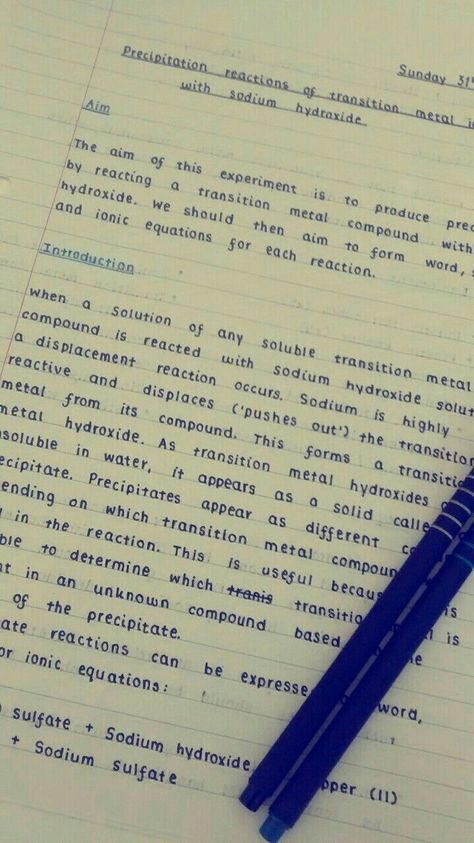 Sunday 31
Precipitation reactions of transition metal
with sodium hydroxide
Aim
The aim of this experiment is to produce
by reacting a transition metal compound with
hydroxide. We should then aim to form word,
and ionic equations for each reaction.
Introduction
When a solution of any soluble transition metal
compound is reacted with sodium hydroxide
a displacement reaction occurs. Sodium is highly
reactive and displaces ('pushes out') the
metal from its compound. This forms a
metal hydroxide. As transition metal hydroxides
in water, it appears as a solid
Precipitates appear as different
on which transition metal
in the reaction. This is useful
to determine which tranis
in an unknown compound based
of the precipitate.
reactions can be word,
or ionic equations:
sulfate + Sodium hydroxide (II)
+ Sodium sulfate